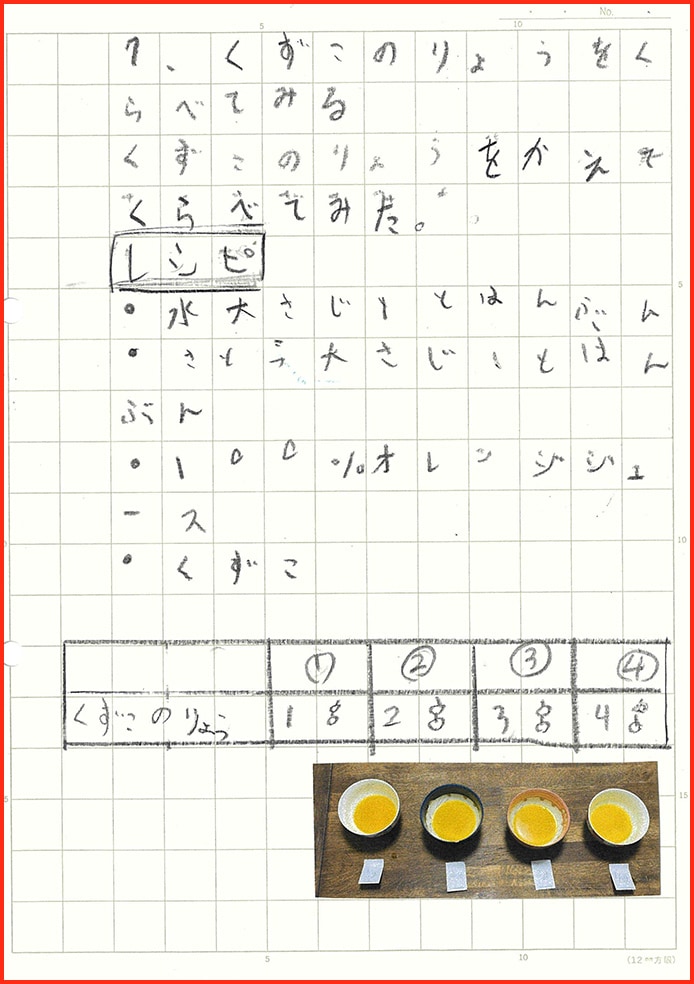 No.
5
10
1、くずこのりょうをく
らべてみる
くずこのりょうをかえて
くらべてみた。
レシピ
・水大さじ1とはんぶん
・さとう大さじ1とはん
ぶん
・100%オレンジジュ
ース
・くずこ
5
10
① ② ③ ④
くずこのりょう 1g 2g 3g 4g
15
5
10
(12㎜方眼)